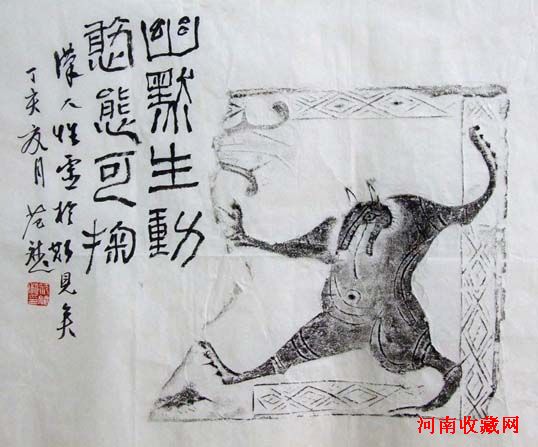 幽默生動
憨態可掬
漢人性靈於斯見矣
丁亥夏月
河南收藏网